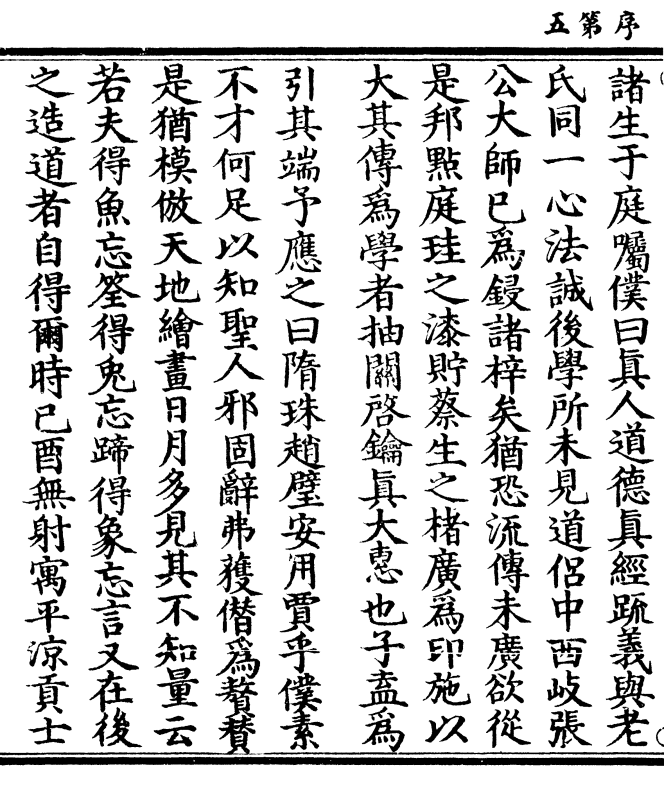 序第五
諸生于庭囑僕曰眞人道德眞經䟽義與老
氏同一心法誠後學所未見道侣中西岐張
公大師已爲鋟諸梓矣猶恐流傳未廣欲從
是邦點庭珪之漆貯蔡生之楮廣爲印施以
大其傳爲學者抽關啓鑰眞大惠也子盍爲
引其端予應之曰隋珠趙璧安用賈乎僕素
不才何足以知聖人邪固辭弗獲僭爲贅贊
是猶模倣天地繪畫日月多見其不知量云
若夫得魚忘筌得兎忘蹄得象忘言又在後
之造道者自得爾時已酉無射寓平凉貢士